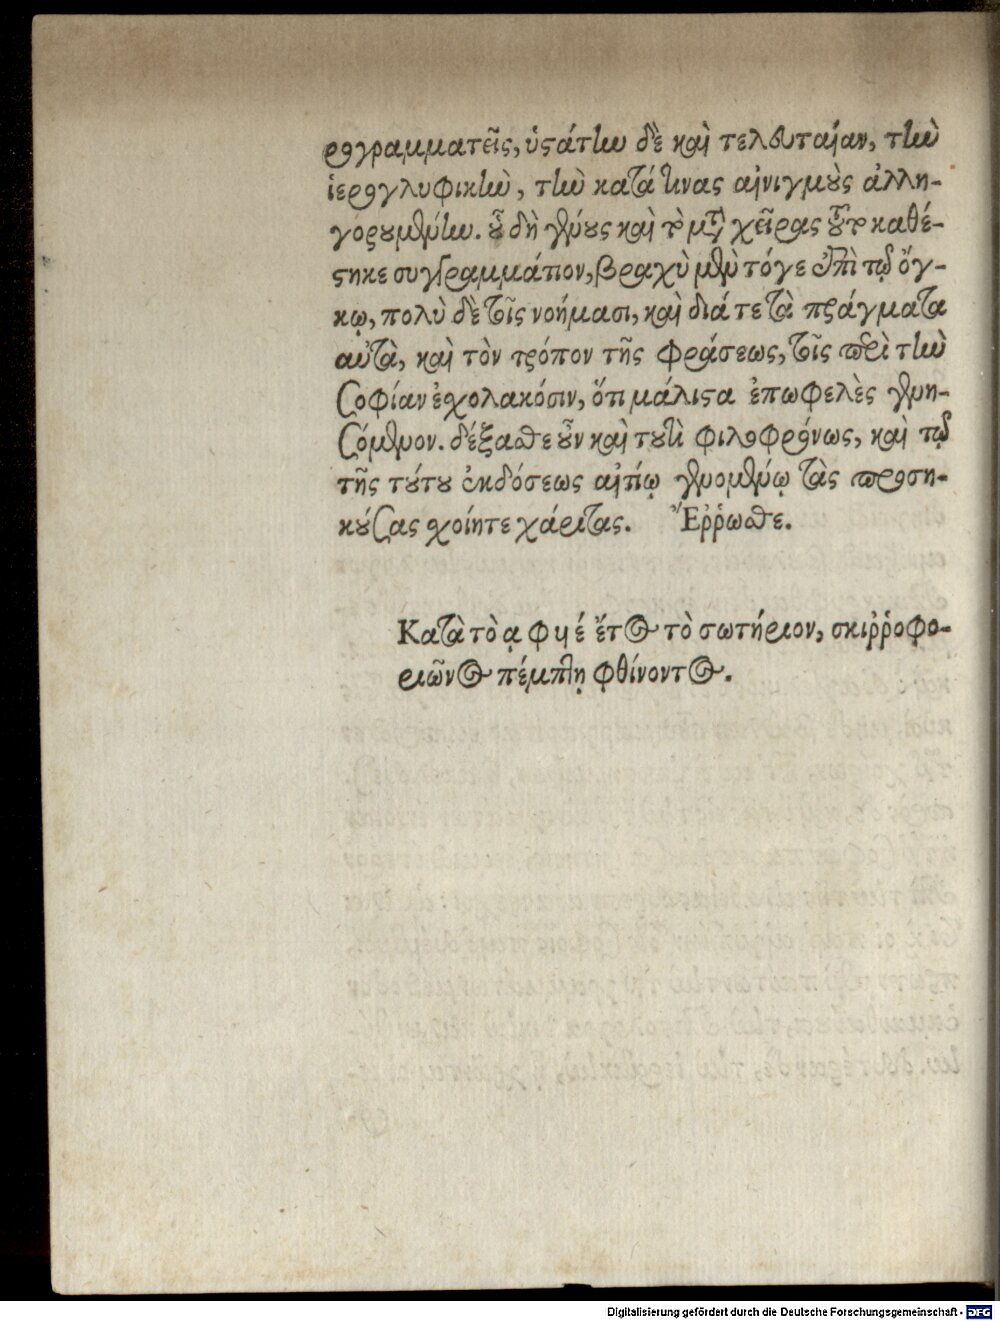 ρογραμματεῖς, ὑστάτην δὲ καὶ τελευταίαν, τὴν
ἱερογλυφικὴν, τὴν κατά τινας αἰνιγμοὺς ἀλλη-
γορουμένην. οὗ δὴ γένους καὶ τὸ μετὰ χεῖρας τοῦτο καθέ-
στηκε συγγραμμάτιον, βραχὺ μὲν τόγε ἐπὶ τῷ ὄγ-
κῳ, πολὺ δὲ τοῖς νοήμασι, καὶ διά τε τὰ πράγματα
αὐτὰ, καὶ τὸν τρόπον τῆς φράσεως, τοῖς περὶ τὴν
σοφίαν ἐσχολακόσιν, ὅτι μάλιστα ἐπωφελὲς γενη-
σόμενον. δέξασθε οὖν καὶ τουτὶ φιλοφρόνως, καὶ τῷ
τῆς τούτου ἐκδόσεως αἰτίῳ γενομένῳ τὰς προση-
κούσας σχοίητε χάριτας. Ἔρρωσθε.
Κατὰ τὸ α φ ϟ έ ἔτος τὸ σωτήριον, σκιῤῥοφο-
ριῶνος πέμπτῃ φθίνοντος.
Digitalisierung gefördert durch die Deutsche Forschungsgemeinschaft - DFG